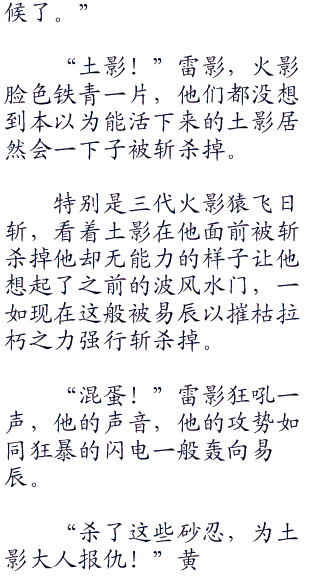 候了。”
“土影！”雷影，火影
脸色铁青一片，他们都没想
到本以为能活下来的土影居
然会一下子被斩杀掉。
特别是三代火影猿飞日
斩，看着土影在他面前被斩
杀掉他却无能力的样子让他
想起了之前的波风水门，一
如现在这般被易辰以摧枯拉
朽之力强行斩杀掉。
“混蛋！”雷影狂吼一
声，他的声音，他的攻势如
同狂暴的闪电一般轰向易
辰。
“杀了这些砂忍，为土
影大人报仇！”黄